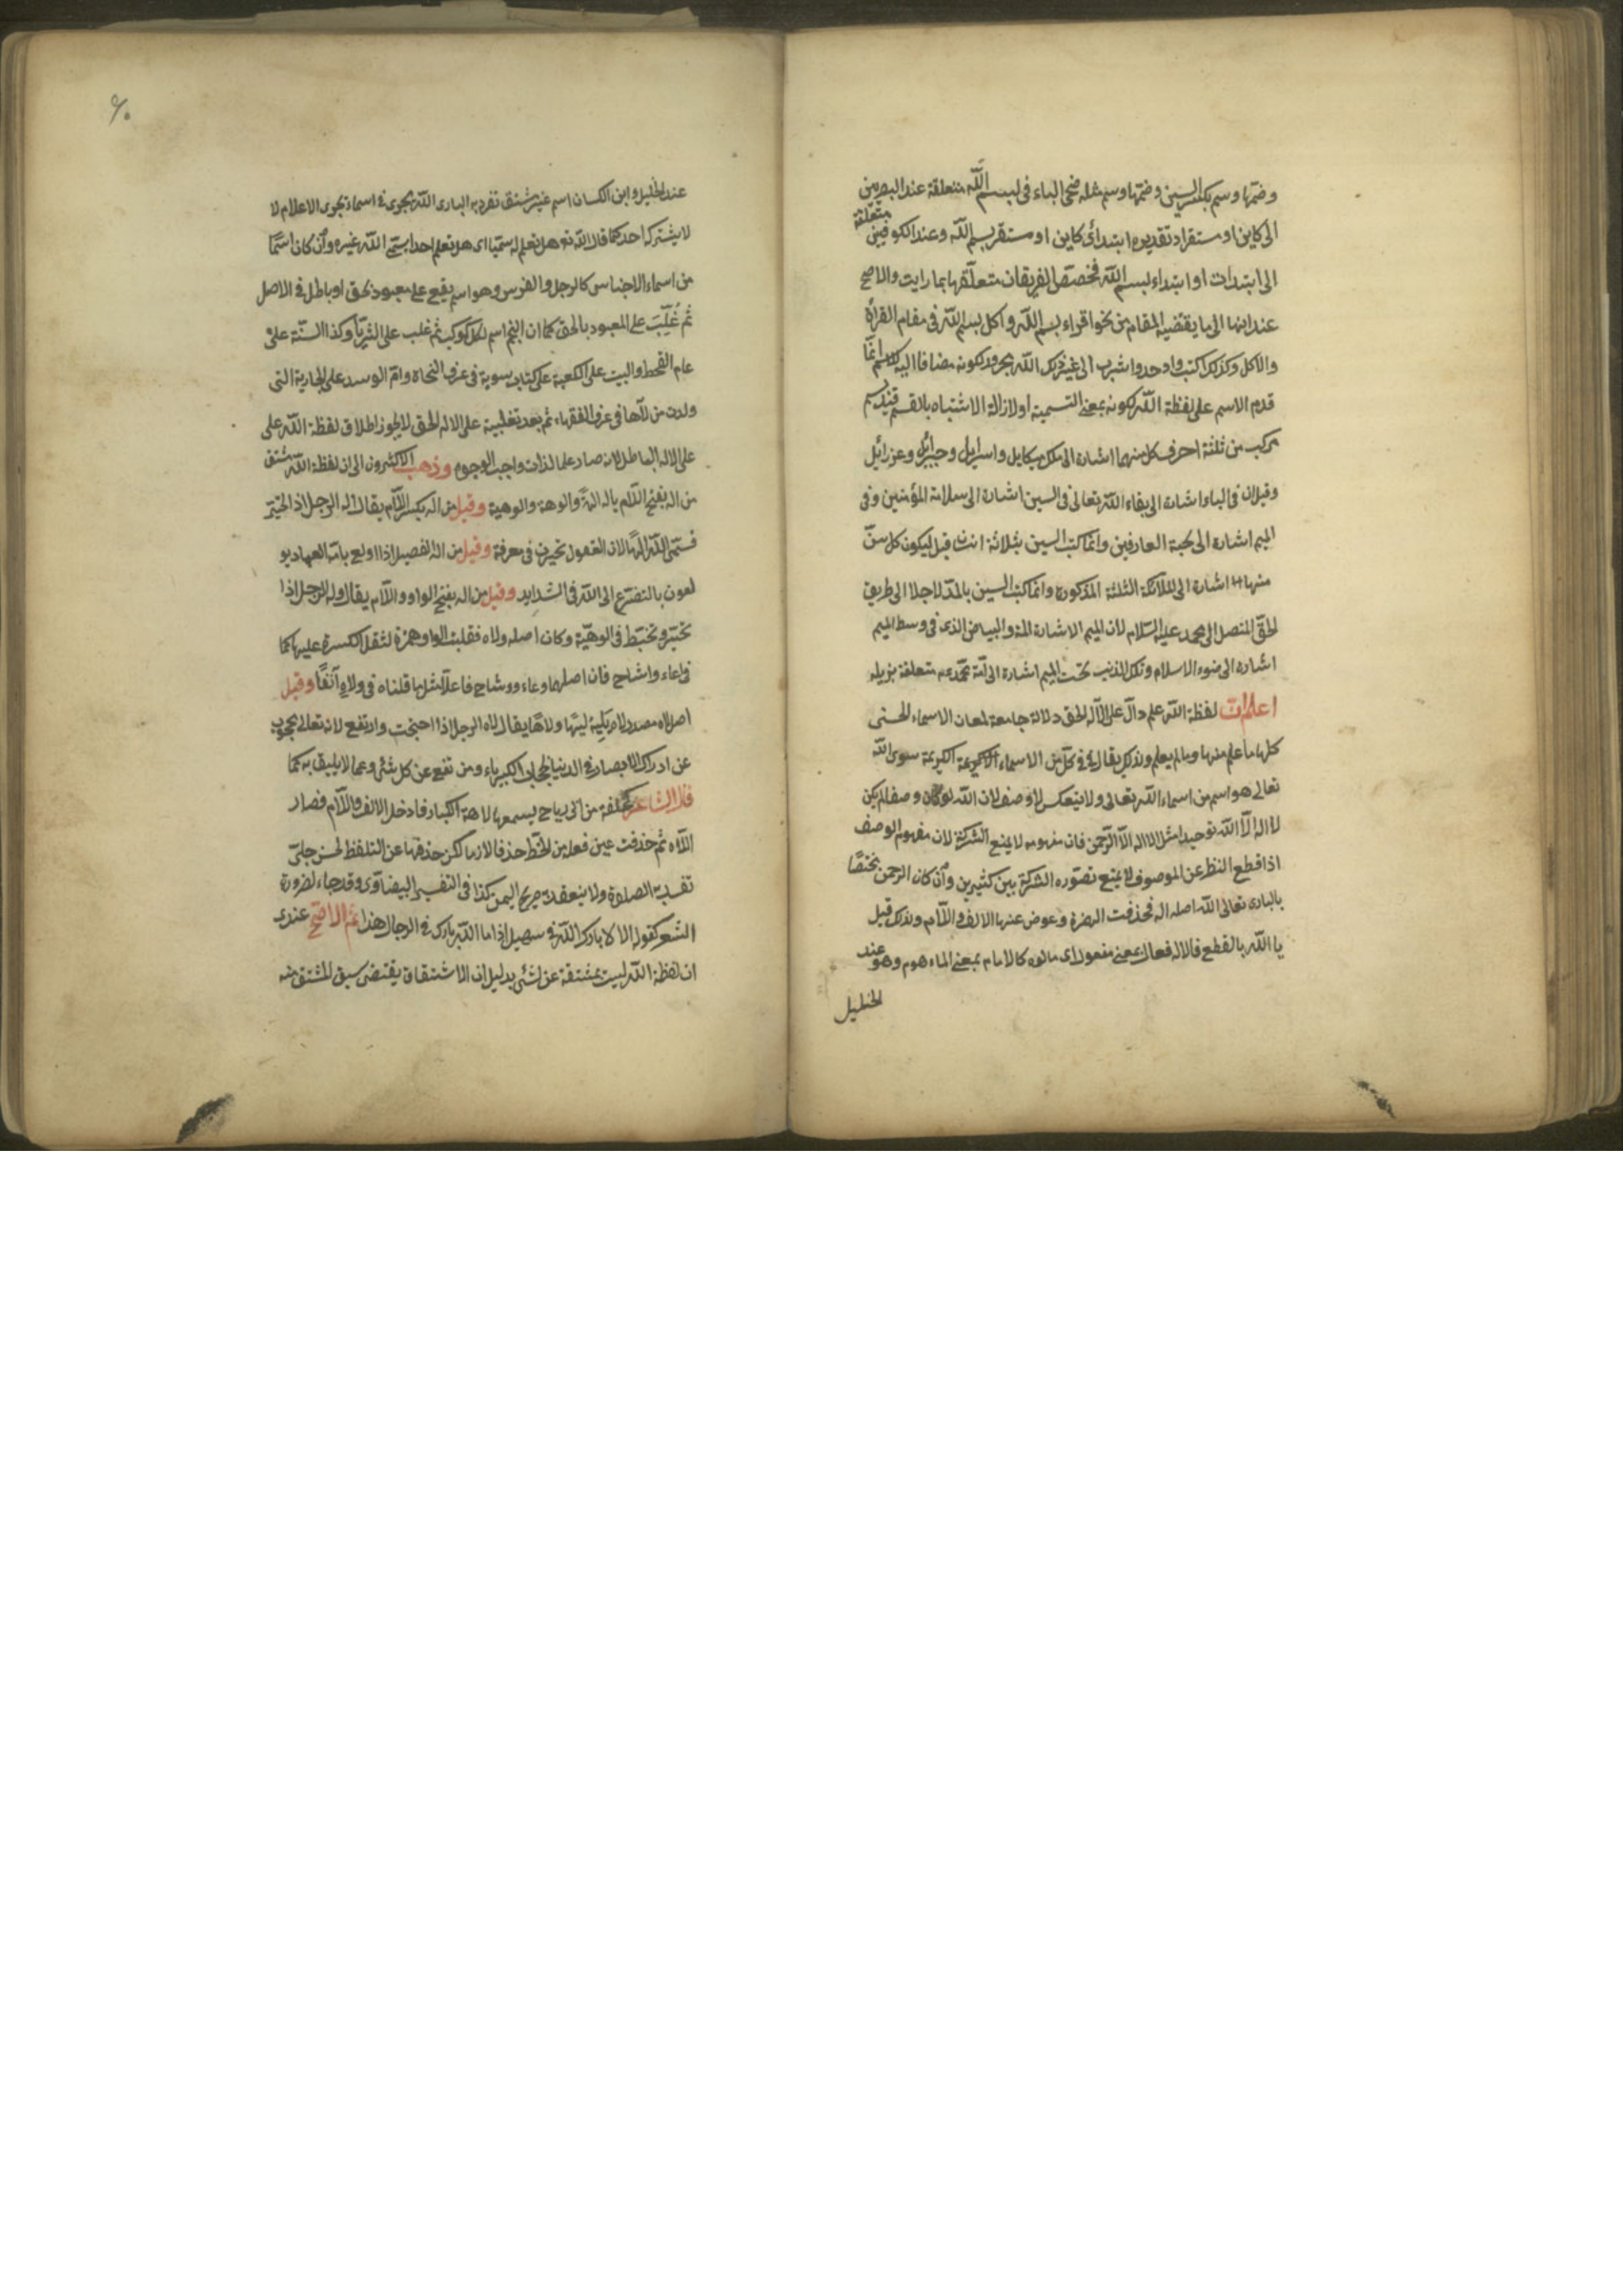 وضمها وسم بكسر السين وضمها وسم مثله ضحى الباء فى بسم الله متعلقة عند البصريين
الى كاين او مستقر اذ تقديره ابتدائى كاين او مستقر بسم الله وعند الكوفيين متعلقة
الى ابتدات او ابتداء بسم الله فخصص الفريقان متعلقها بما رايت والاصح
عند انها الى ما يقتضيه المقام من نحو اقراء بسم الله واكل بسم الله فى مقام القراة
والاكل وكذلك اكتب واوحدوا شرب الى غير ذلك الله مجرور لكونه مضافا اليه للاسم انما
قدم الاسم على لفظة الله لكونه بمعنى التسمية او لازالة الاشتباه بالقسم قيل بسم
مركب من ثلثة احرف كل منهما اشارة الى ملك ميكايل واسرايل وجبرائيل وعزرائيل
وقيل ان فى الباء اشارة الى بقاء الله تعالى فى السين اشارة الى سلامة المؤمنين وفى
الميم اشارة الى محبة العارفين وانما كتب السين بثلاثة قيل ليكون كل سن
منها اشارة الى الملائكة الثلثة المذكورة وانما كتب السين بالمد لاجلا الى طريق
الحق المتصل الى محمد عليه السلام لان الميم الاشارة المة والبياض الذى فى وسط الميم
اشارة الى ضوء الاسلام وتلك الذنب تحت الميم اشارة الى امة محمد متعلقة بزيله
اعلم ان لفظة الله علم دال على الاله الحق دلالة جامعة لمعان الاسماء الحسنى
كلها ما علم منها وما لم يعلم ولذلك يقال فى كل من الاسماء الكريمة سوى الله
تعالى هو اسم من اسماء الله تعالى ولا ينعكس لا وصف لان الله لو كان وصفا لم يكن
لا اله الا الله توحيدا مثل لا اله الا الرحمن فان مفهومه لا يمنع الشركة لان مفهوم الوصف
اذا قطع النظر عن الموصوف لا يمنع تصوره الشركة بين كثيرين وان كان الرحمن مختصا
بالبارى تعالى الله اصله اله فحذفت الهمزة وعوض عنها الالف واللام ولذلك قيل
يا الله بالقطع فالاله فعال بمعنى مفعول اى مالوه كالامام بمعنى الماءموم وهو عند
الخليل
۶۰
عند الخليل وابن الكسان اسم غير مشتق تفرد به البارى الله يجرى فى اسماء مجرى الاعلام لا
لا يشترك احد كما قال الله تع هل تعلم له سميا اى هل تعلم احدا يسمى الله غيره وان كان اسما
من اسماء الاجناس كالرجل والفرس وهو اسم يقع على معبود بحق او باطل فى الاصل
ثم غلب على المعبود بالحق كما ان النجم اسم لكل كوكب ثم غلب على الثريا وكذا السنة على
عام القحط والبيت على الكعبة على كتاب سوية فى عرف النحاة وام الوسد على الجارية التى
ولدت من لاها فى عرف الفقهاء ثم بعد تغلبية على الاله الحق لا يجوز اطلاق لفظة الله على
على الاله الباطل لانه صار علما لذات واجب الوجوم وذهب الاكثرون الى ان لفظة الله مشتق
من اله بفتح اللام ياله الهة والوهة والوهية وقيل من اله بكسر اللام يقال اله الرجل اذا تحير
فسمى الله الها لان العقول تحيرت فى معرفة وقيل من اله الفصيل اذا اولع بامه العباد يو
لعون بالتضرع الى الله فى الشدايد وقيل من اله بفتح الواو واللام يقال وله الرجل اذا
تحير وتخبط فى الوهية وكان اصله ولاه فقلبت الواو همزة لثقل الكسرة عليها كما
فى اعاء واشاح فان اصلهما وعاء ووشاح فاعلا مثل ما قلناه فى ولاه آنفا وقيل
اصله لاه مصدر لاه يليه ليها ولاها يقال لاه الرجل اذا احتجبت وارتفع لانه تعالى محجوب
عن ادراك الابصار فى الدنيا لحجاب الكبرياء ومرتفع عن كل شئ وعما لا يليق به كما
قال الشاعر كحلفة من ابى رياح يسمعها لاهه الكبار فادخل الالف واللام فصار
اللاه ثم حذفت عين فعله من الخط حذفا لازما لكن حذفها عن التلفظ لحن جلى
تفسد به الصلوة ولا ينعقد به صريح اليمين كذا فى التفسير البيضاوى وقد جاء لضرورة
الشعر كقوله الا لا بارك الله فى سهيل اذا ما الله بارك فى الرجال هذا ثم الاصح عندى
ان لفظة الله ليست بمشتقة عن لشئ بدليل ان الاشتقاق يقتضى سبق المشتق منه